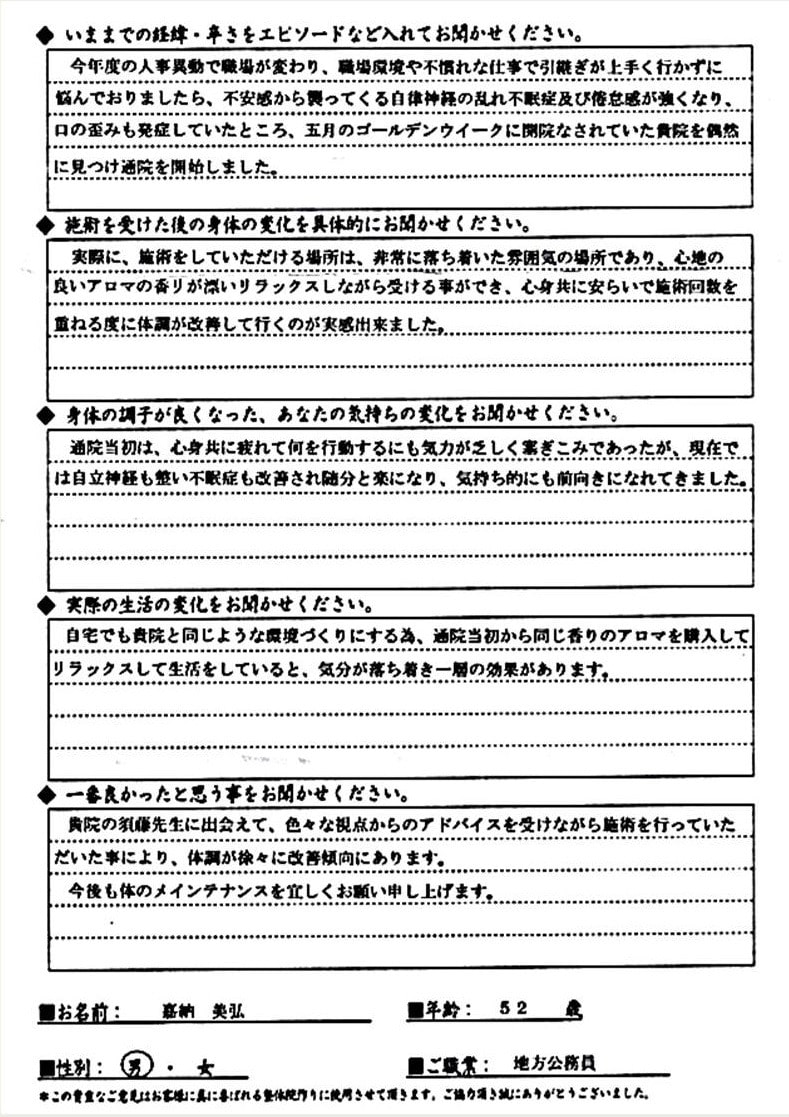 ◆ いままでの経緯・辛さをエピソードなど入れてお聞かせください。
今年度の人事異動で職場が変わり、職場環境や不慣れな仕事で引継ぎが上手く行かずに
悩んでおりましたら、不安感から襲ってくる自律神経の乱れ不眠症及び倦怠感が強くなり、
口の歪みも発症していたところ、五月のゴールデンウイークに開院なされていた貴院を偶然
に見つけ通院を開始しました。
◆ 施術を受けた後の身体の変化を具体的にお聞かせください。
実際に、施術をしていただける場所は、非常に落ち着いた雰囲気の場所であり、心地の
良いアロマの香りが漂いリラックスしながら受ける事ができ、心身共に安らいで施術回数を
重ねる度に体調が改善して行くのが実感出来ました。
◆ 身体の調子が良くなった、あなたの気持ちの変化をお聞かせください。
通院当初は、心身共に疲れて何を行動するにも気力が乏しく塞ぎこみであったが、現在で
は自立神経も整い不眠症も改善され随分と楽になり、気持ち的にも前向きになれてきました。
◆ 実際の生活の変化をお聞かせください。
自宅でも貴院と同じような環境づくりにする為、通院当初から同じ香りのアロマを購入して
リラックスして生活をしていると、気分が落ち着き一層の効果があります。
◆ 一番良かったと思う事をお聞かせください。
貴院の須藤先生に出会えて、色々な視点からのアドバイスを受けながら施術を行っていた
だいた事により、体調が徐々に改善傾向にあります。
今後も体のメインテナンスを宜しくお願い申し上げます。
■お名前： 嘉納 美弘 ■年齢： 52 歳
■性別： 男 ・ 女 ■ご職業： 地方公務員
＊この貴重なご意見はお客様に真に喜ばれる整体院作りに使用させて頂きます。ご協力頂き誠にありがとうございました。